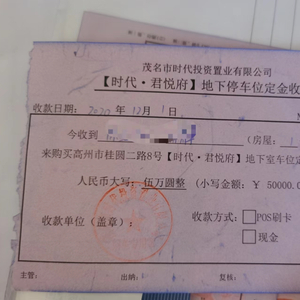 茂名市时代投资置业有限公司
【时代·君悦府】地下停车位定金收
收款日期: 2020年12月1日
今收到 (房屋: 1
来购买高州市桂圆二路8号【时代·君悦府】地下室车位定
人民币大写: 伍万圆整 (小写金额: ¥ 50000.0
收款单位(盖章): 收款方式: □POS刷卡
□现金
主管: 出纳: 复核: